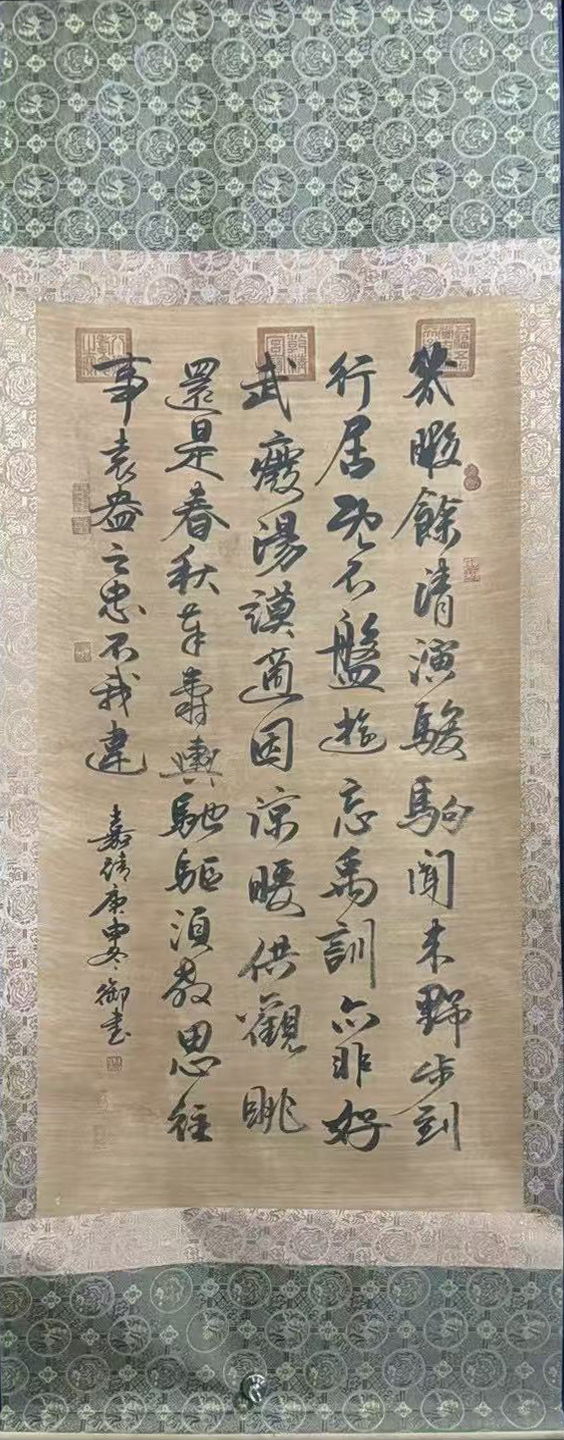 幾暇餘清演駿駒閒來野步到
行居既不盤遊忘禹訓亦非好
武廢湯謨適因涼暖供觀眺
還是春秋奉壽輿馳驅須教思往
事袁盎之忠不我違
嘉靖庚申冬御書